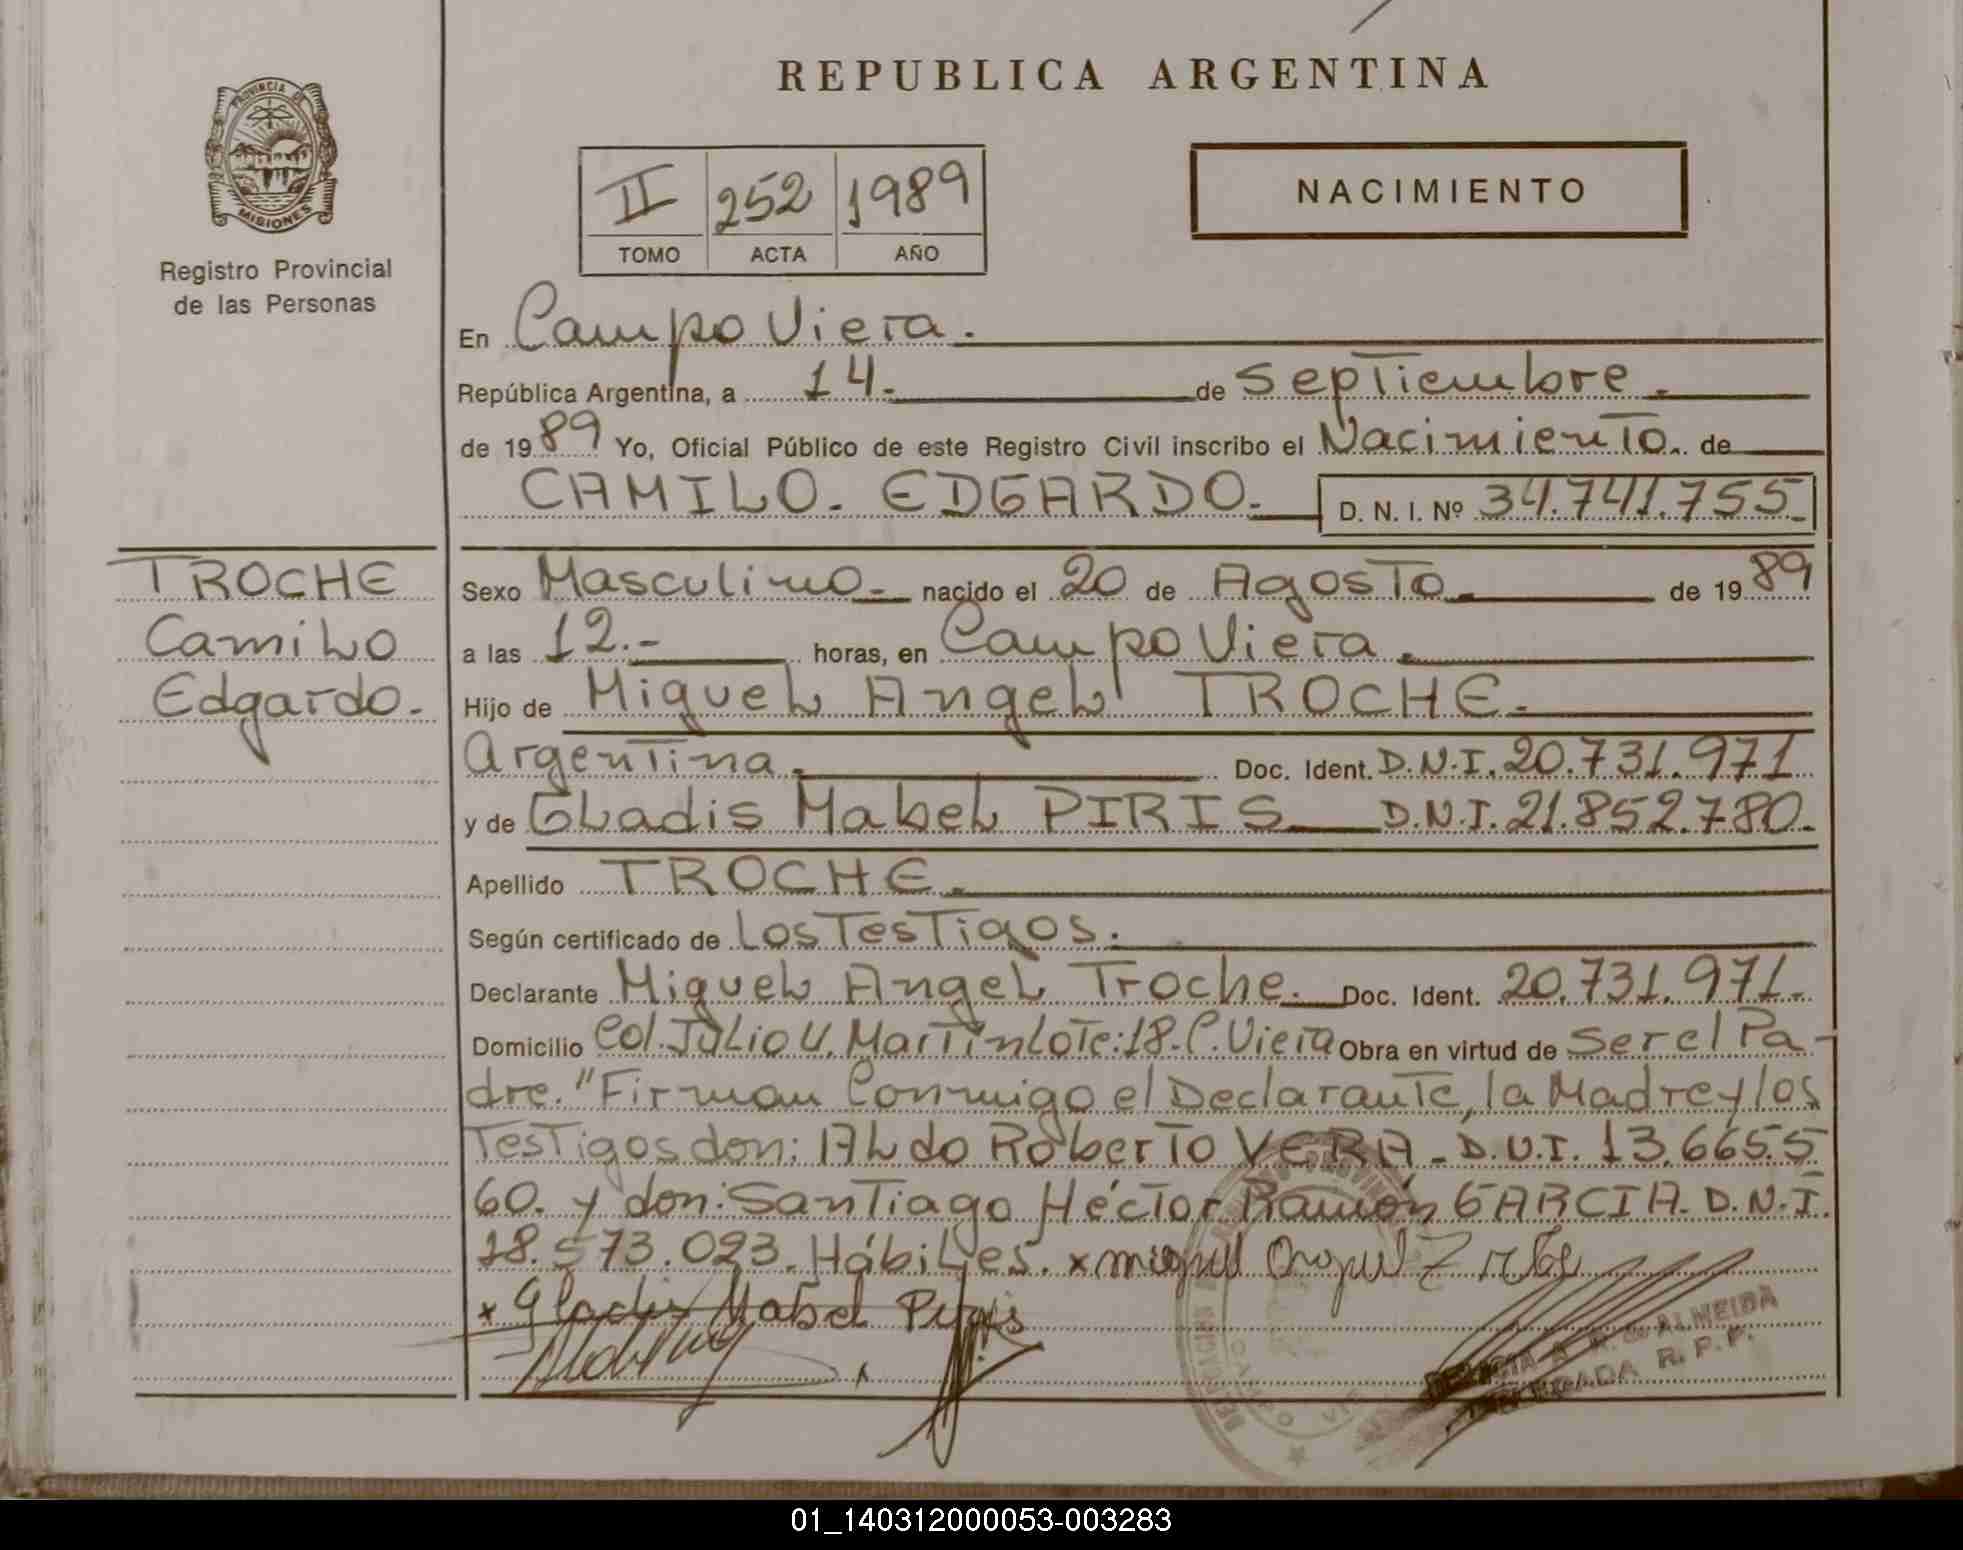 REPUBLICA ARGENTINA
PROVINCIA DE
MISIONES
Registro Provincial
de las Personas
II 252 1989
TOMO ACTA AÑO
NACIMIENTO
En Campo Viera.
República Argentina, a 14.- de Septiembre.
de 1989 Yo, Oficial Público de este Registro Civil inscribo el Nacimiento. de
CAMILO. EDGARDO. D. N. I. Nº 34.741.755.
TROCHE
Camilo
Edgardo.
Sexo Masculino. nacido el 20 de Agosto. de 1989
a las 12.- horas, en Campo Viera.
Hijo de Miguel Angel TROCHE.
Argentina. Doc. Ident. D.N.I. 20.731.971
y de Gladis Mabel PIRIS D.N.I. 21.852.780.
Apellido TROCHE.
Según certificado de Los Testigos.
Declarante Miguel Angel Troche. Doc. Ident. 20.731.971.
Domicilio Col. Julio U. Martin Lote: 18. C. Viera Obra en virtud de Ser el Pa-
dre. "Firman Conmigo el Declarante, la Madre y los
Testigos don: Aldo Roberto VERA. D.N.I. 13.665.5
60. y don: Santiago Héctor Ramón GARCIA. D.N.I.
18.573.023. Hábiles. x Miguel Angel
x Gladis Mabel Piris
x
DELEGADA R. P. P.
01_140312000053-003283